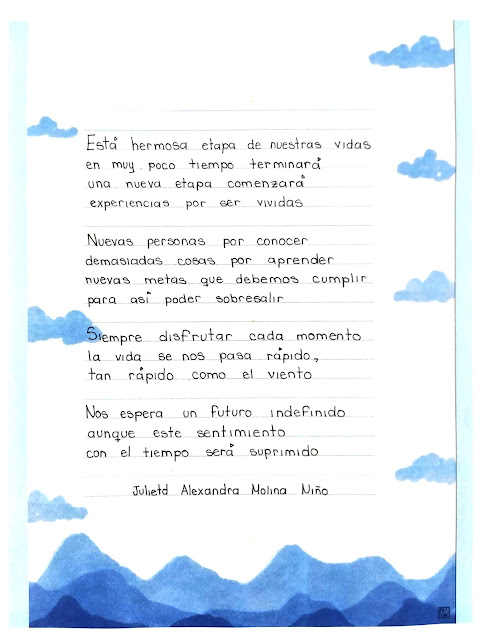 Está hermosa etapa de nuestras vidas
en muy poco tiempo terminará
una nueva etapa comenzará
experiencias por ser vividas
Nuevas personas por conocer
demasiadas cosas por aprender
nuevas metas que debemos cumplir
para así poder sobresalir
Siempre disfrutar cada momento
la vida se nos pasa rápido,
tan rápido como el viento
Nos espera un futuro indefinido
aunque este sentimiento
con el tiempo será suprimido
Julietd Alexandra Molina Niño